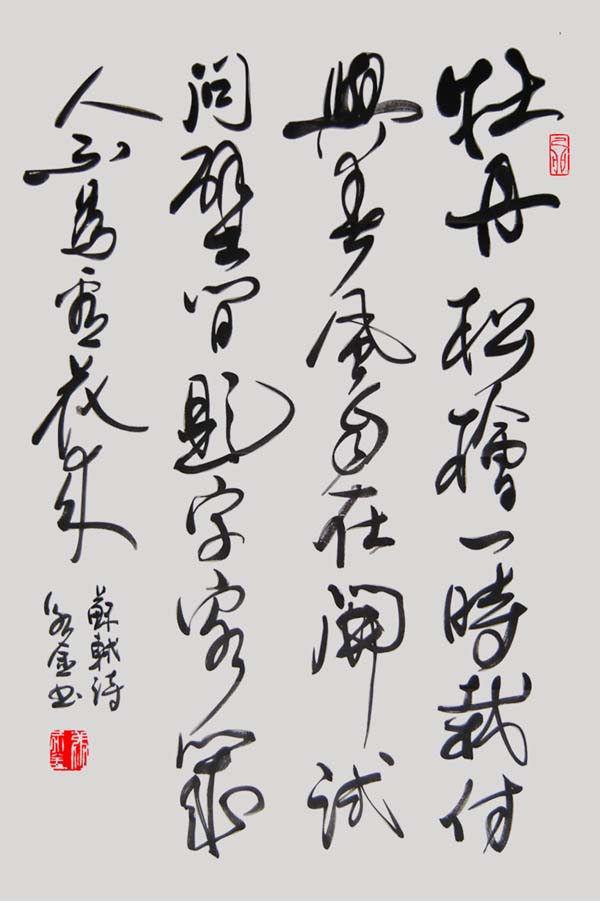 牡丹松檜一時栽付
與春風自在開試
問壁間題字客幾
人不為看花來
蘇軾詩
金書